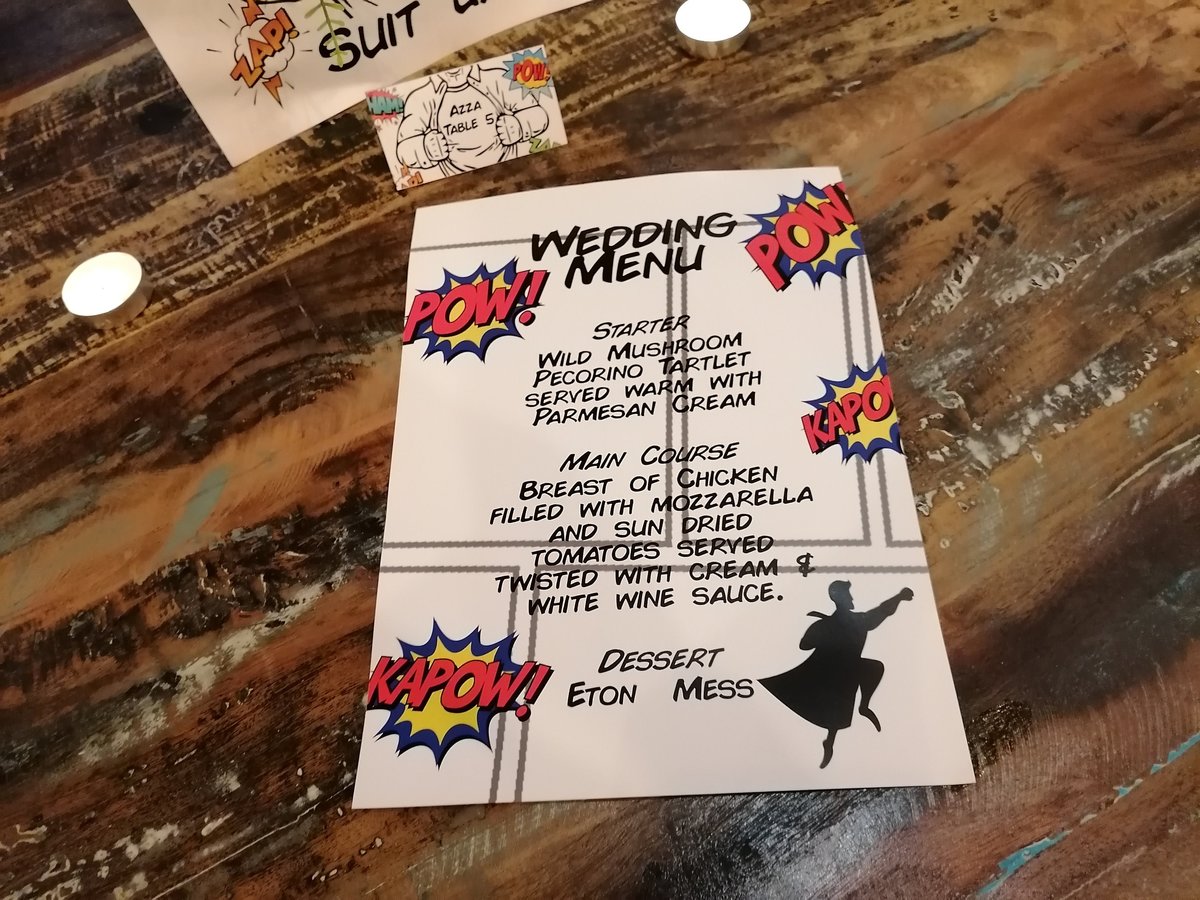 ZAP!
SUIT
POW!
AZZA
TABLE 5
WEDDING
MENU
POW!
POW!!
STARTER
WILD MUSHROOM
PECORINO TARTLET
SERVED WARM WITH
PARMESAN CREAM
KAPO
MAIN COURSE
BREAST OF CHICKEN
FILLED WITH MOZZARELLA
AND SUN DRIED
TOMATOES SERVED
TWISTED WITH CREAM &
WHITE WINE SAUCE.
KAPOW!
DESSERT
ETON MESS